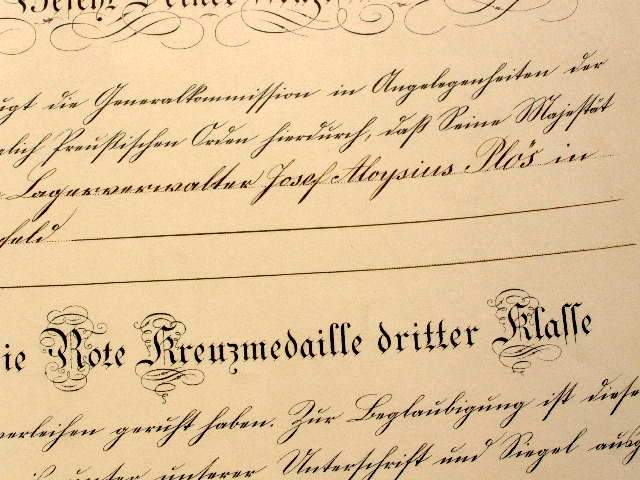 ugt die Generalkommission in Angelegenheiten der
lich Preußischen Orden hierdurch, daß Seine Majestät
Lagerverwalter Josef Aloysius Plös in
feld
ie Rote Kreuzmedaille dritter Klasse
verleihen geruht haben. Zur Beglaubigung ist diese
unter unserer Unterschrift und Siegel ausg